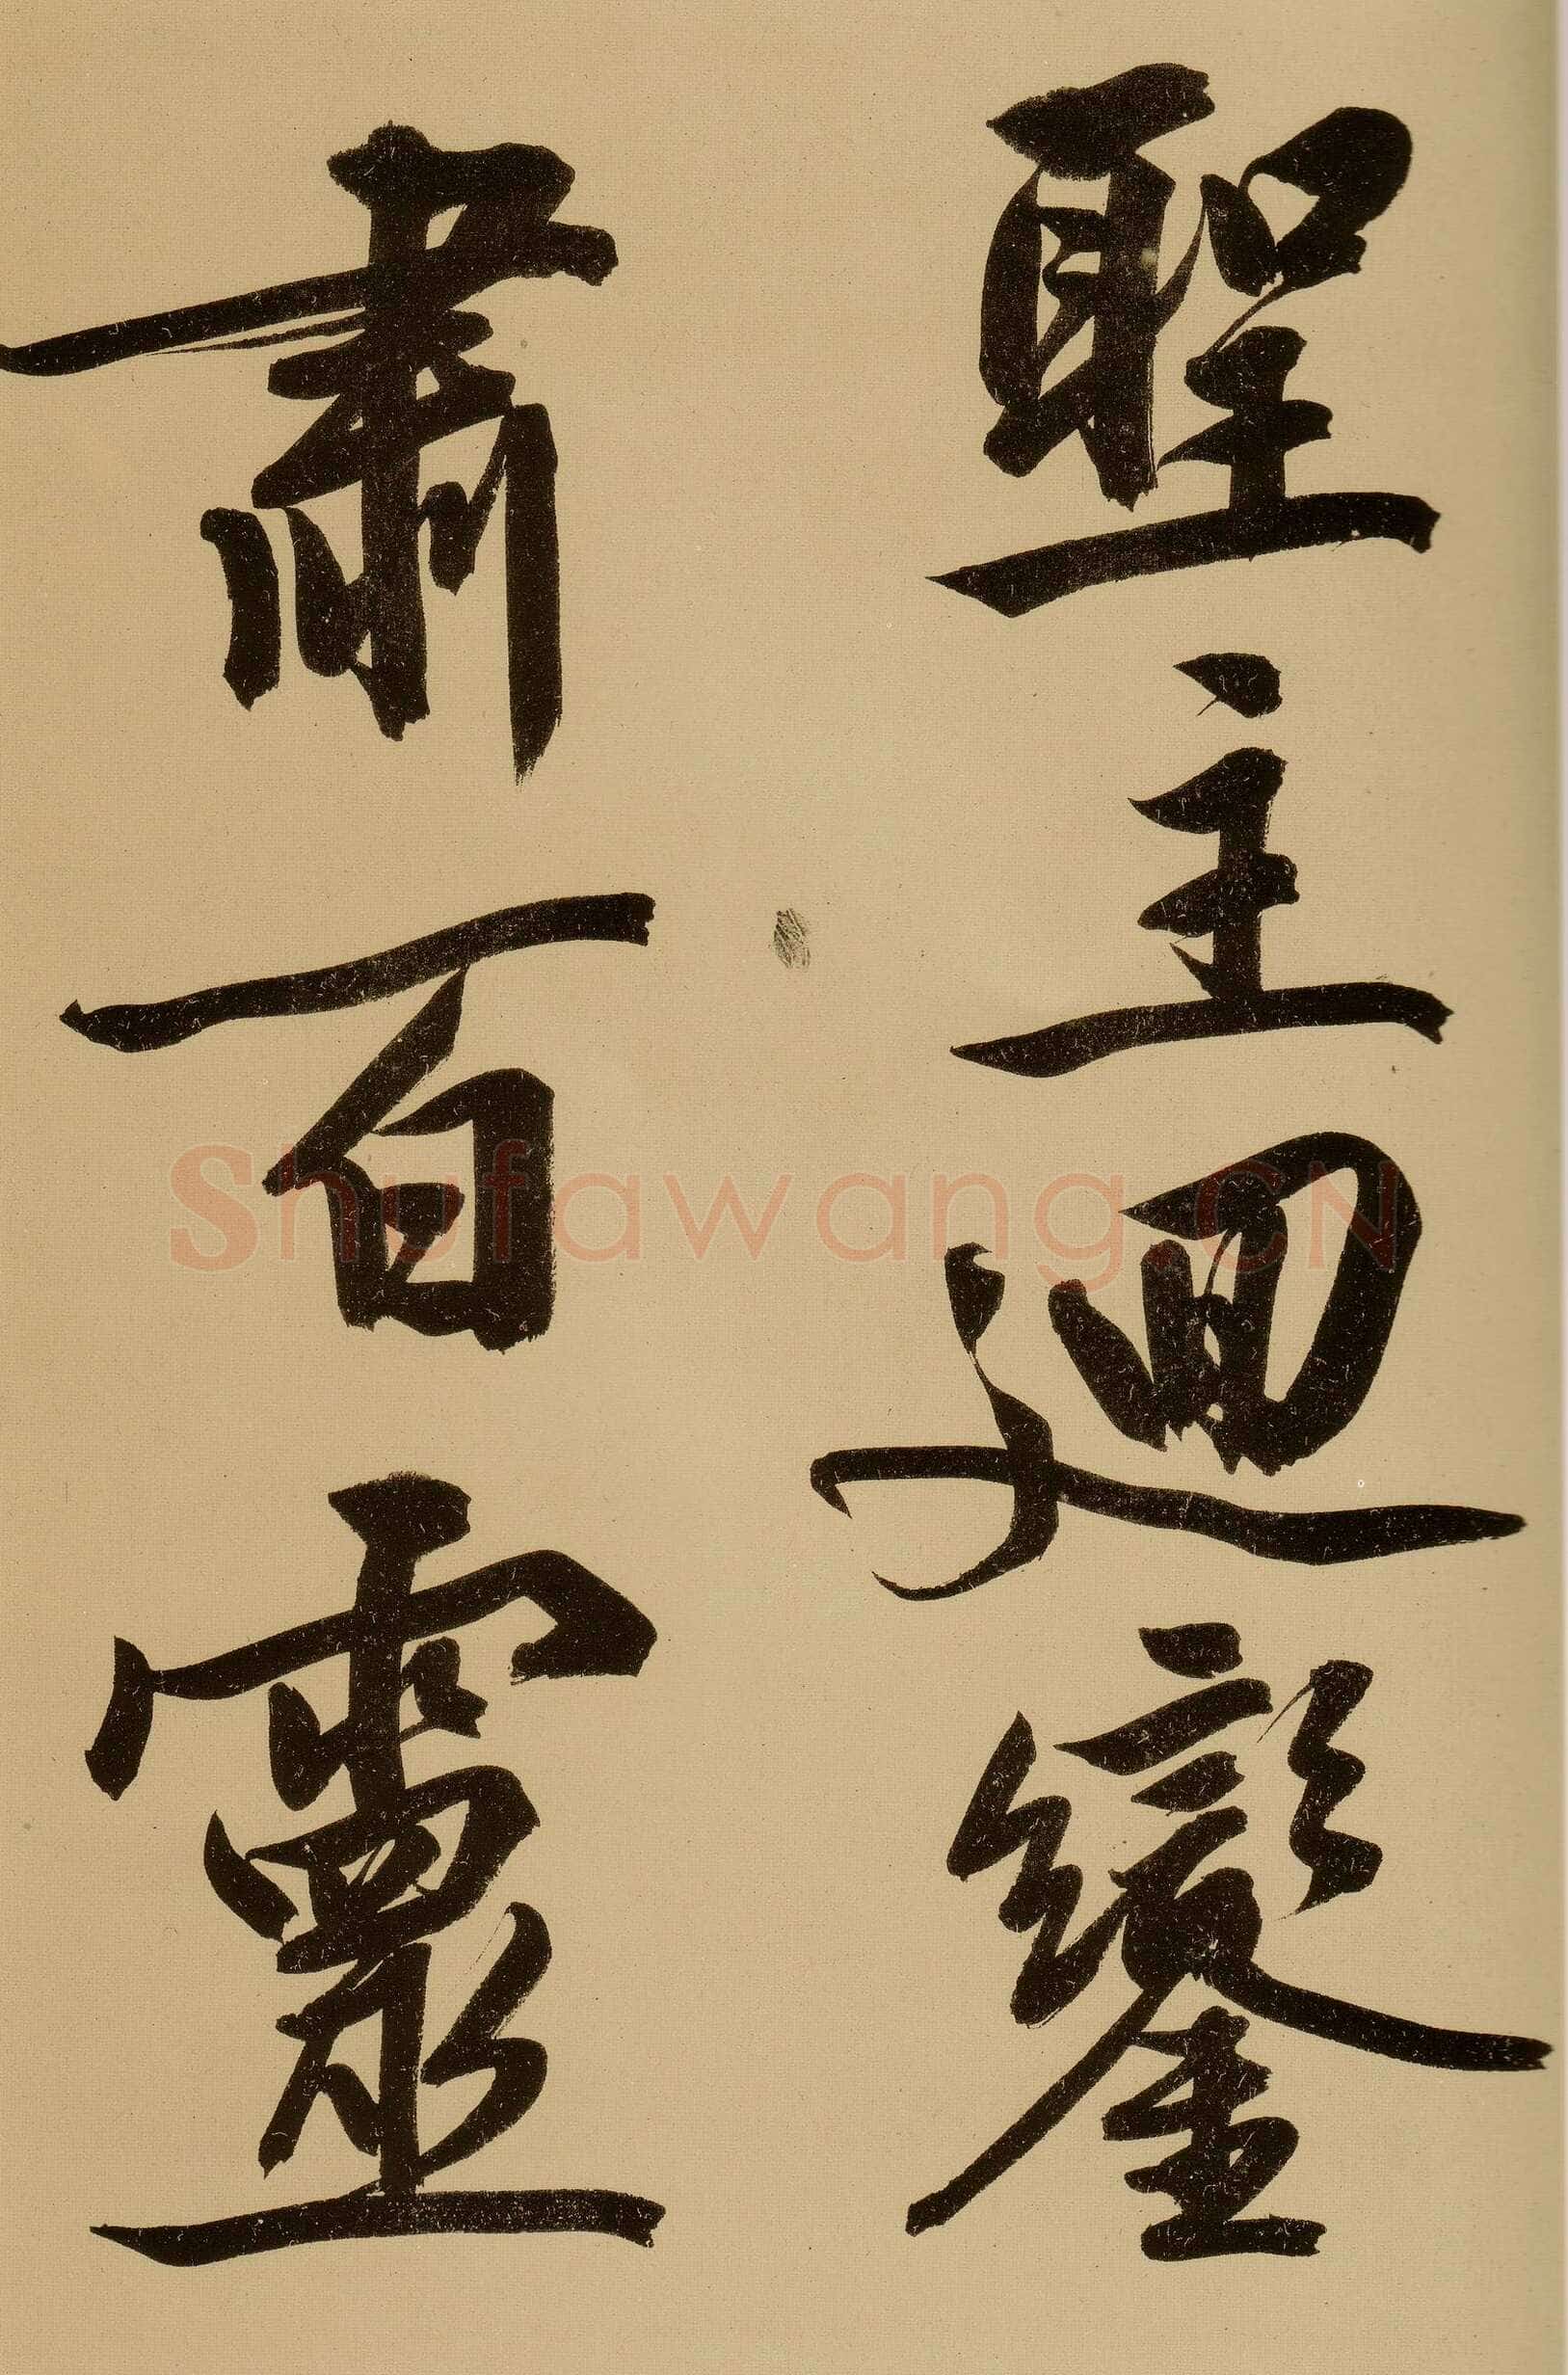 聖主迴鑾
肅百靈
Shufawang.CN